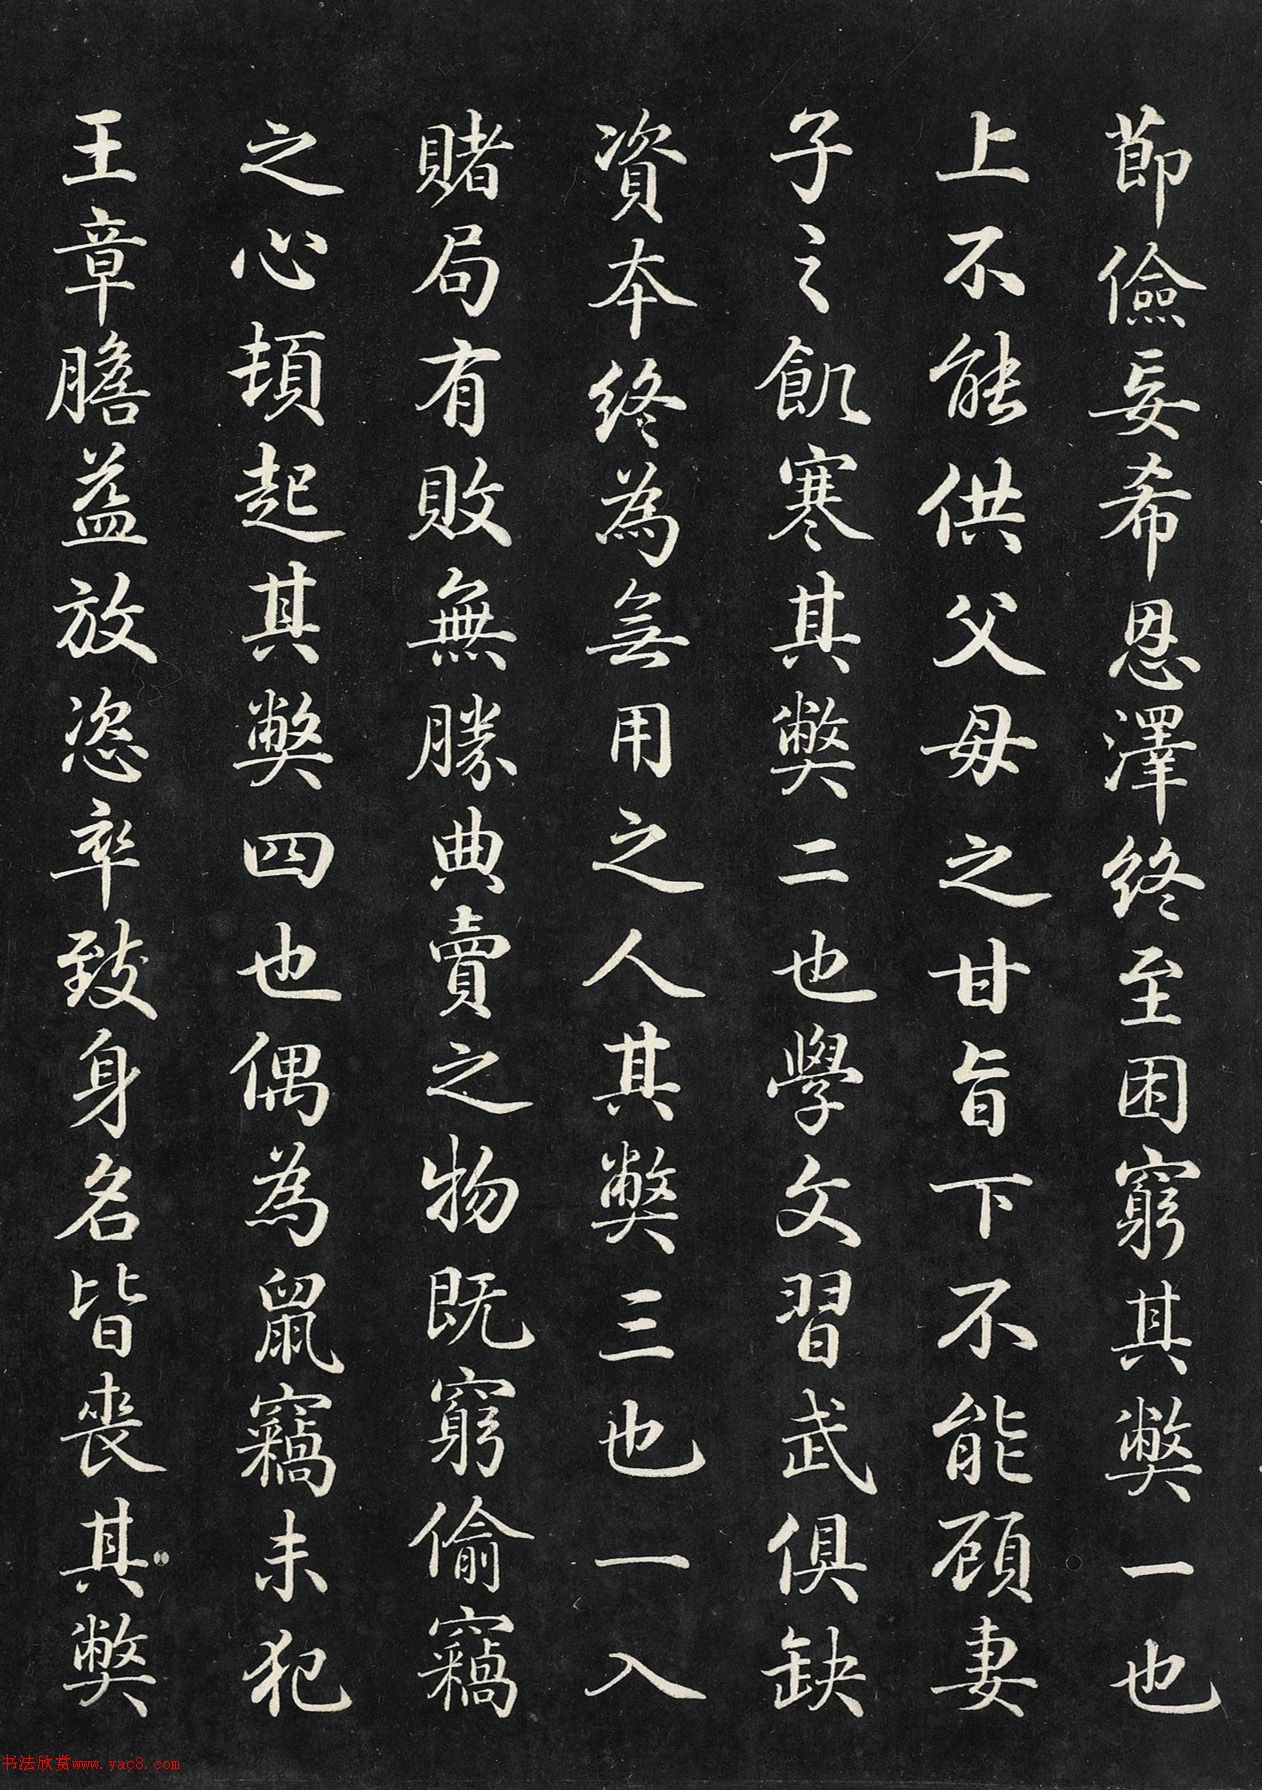 節儉妄希恩澤終至困窮其弊一也
上不能供父母之甘旨下不能顧妻
子之飢寒其弊二也學文習武俱缺
資本終為無用之人其弊三也一入
賭局有敗無勝典賣之物既窮偷竊
之心頓起其弊四也偶為鼠竊未犯
王章膽益放恣率致身名皆喪其弊
书法欣赏www.yac8.com